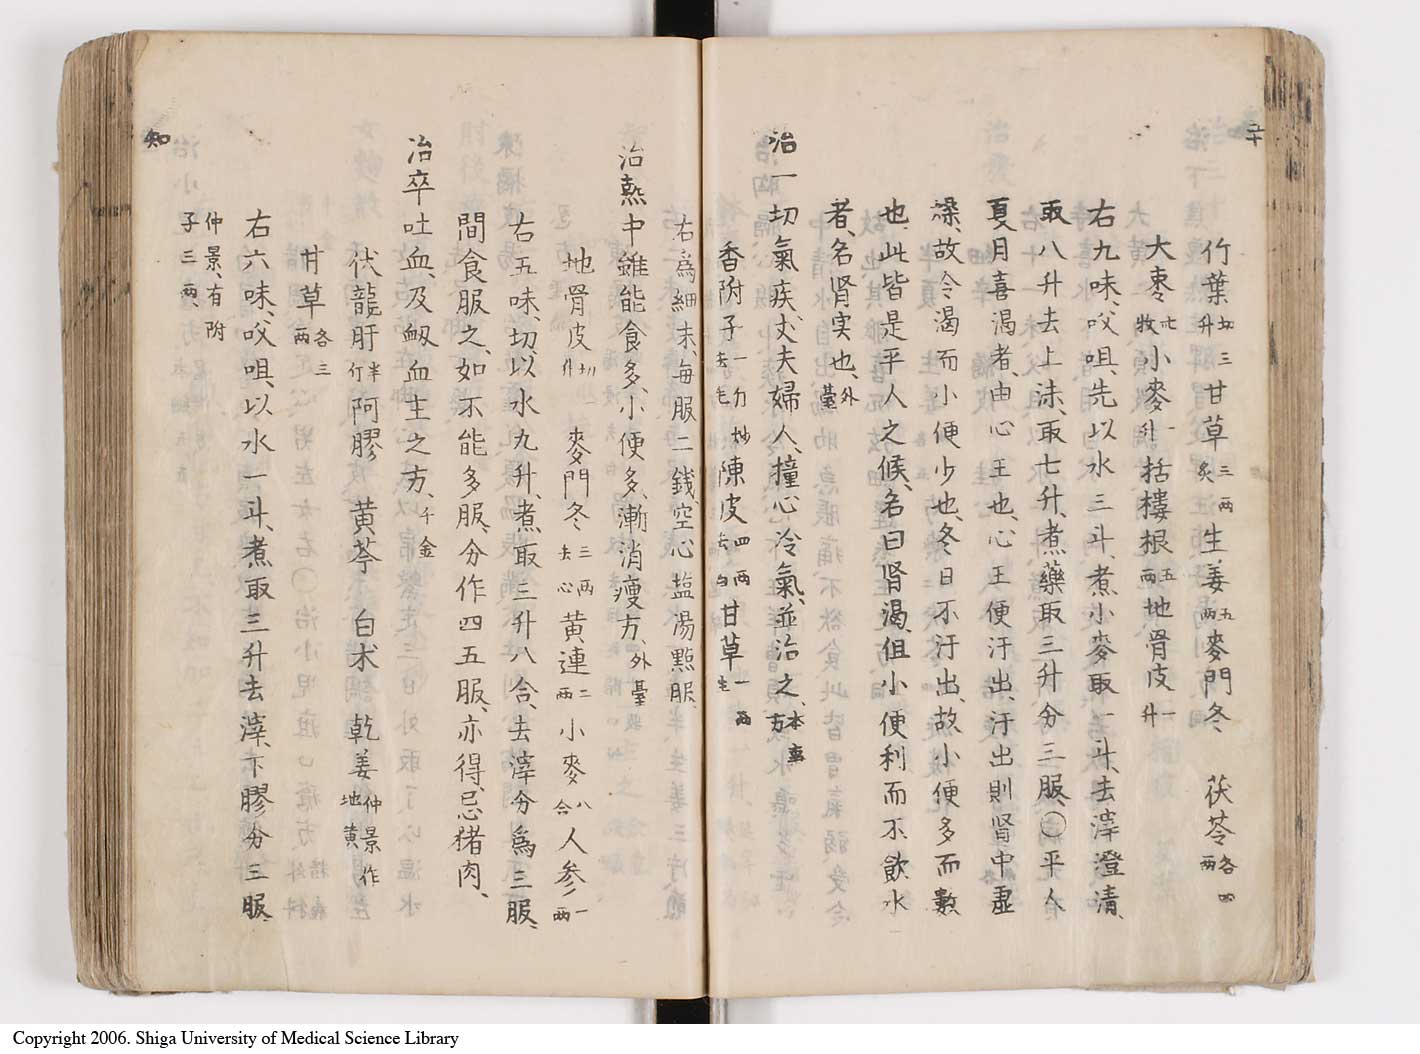 竹葉切三升甘草三兩炙生姜五兩麥門冬　茯苓各四兩
大棗卄枚小麥一升栝樓根五兩地骨皮一升
右九味、㕮咀、先以水三斗、煮小麥取一斗、去滓澄清、
取八升去上沫、取七升、煮藥取三升、分三服、〇平人
夏月喜渴者、由心王也、心王便汗出、汗出則腎中虛
燥、故令渴而小便少也、冬日不汗出、故小便多而數
也、此皆是平人之候、名曰腎渴、但小便利而不飲水
者、名腎実也、外臺
治一切氣疾、丈夫婦人、撞心冷氣、並治之、本事方
香附子一斤炒去毛陳皮四兩去白甘草一兩
右爲細末、每服二錢、空心盐湯點服、
治熱中雖能食多、小便多、漸消瘦方、外臺
地骨皮切一升　麥門冬三兩去心黄連二兩小麥八合人参一兩
右五味、切、以水九升、煮取三升八合、去滓分爲三服、
間食服之、如不能多服、分作四五服、亦得、忌猪肉、
治卒吐血、及衄血主之方、千金
伏龍肝半斤阿膠　黄芩　白朮　乾姜仲景作地黄
甘草各三兩
右六味、㕮咀、以水一斗、煮取三升去滓、下膠分三服、
仲景、有附子三兩
知
Copyright 2006. Shiga University of Medical Science Library